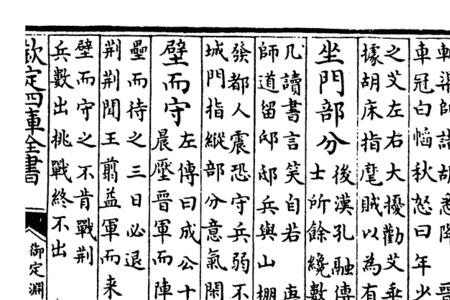 渠帥詣胡悉降
車冠白幍秋怒曰年少
之艾左右大擾勸艾乗
據胡床指麾賊以為有
坐門部分
後漢孔融傳
士所餘纔數
凡讀書言笑自若
師道留邸邸兵與山棚
發都人震恐守兵弱不
城門指縱部分意氣閒
壁而守
左傳曰成公十
晨壓晉軍而陣
壘而待之三日必退
荆荆聞王翦益軍而來
壁而守之不肯戰荆
兵數出挑戰終不出
欽定四庫全書
御定淵